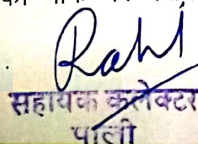 Rahl
सहायक कलेक्टर
पाली